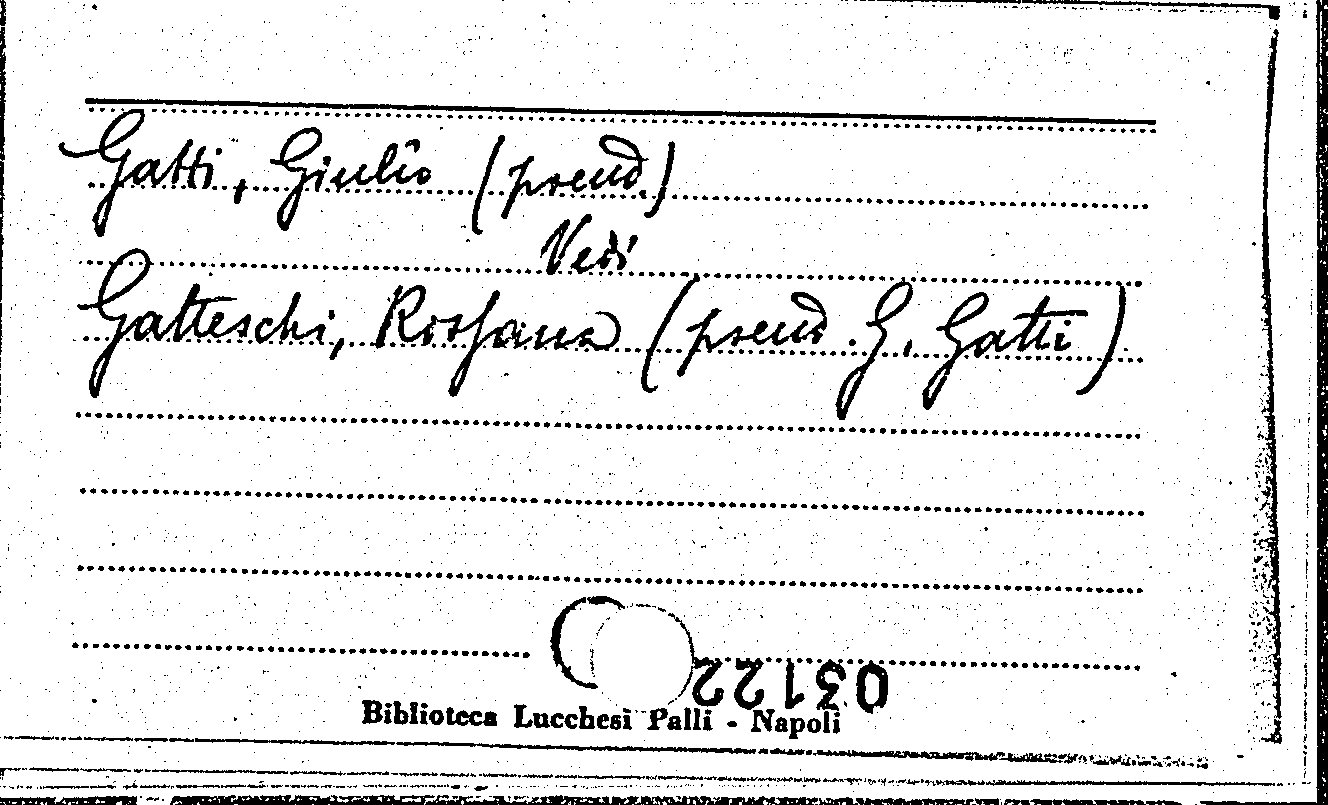 Gatti, Giulio (pseud.)
Vedi
Gatteschi, Rossana (pseud. G. Gatti)
03122
Biblioteca Lucchesi Palli - Napoli